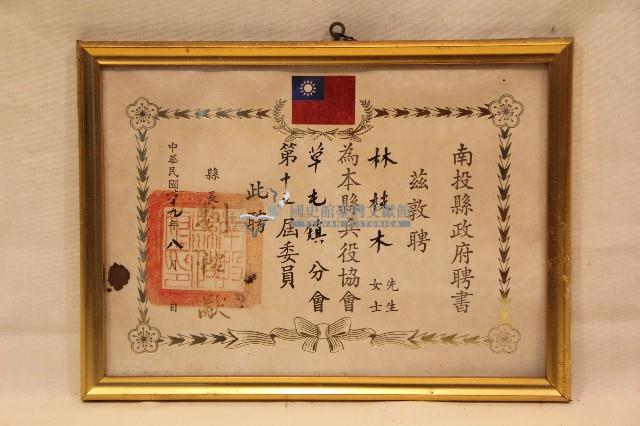 南投縣政府聘書
茲敦聘
林樹木 先生
女士
為本縣兵役協會
草屯鎮分會
第十 屆委員
此聘
縣長
中華民國六十九年八月 日
國史館臺灣文獻館
TAIWAN HISTORICA